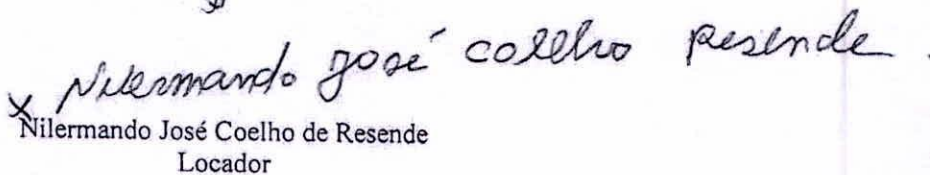 x Nilermando José Coelho Resende.
Nilermando José Coelho de Resende
Locador